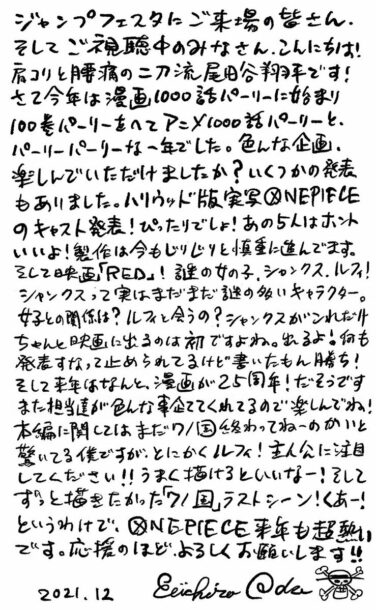 ジャンプフェスタにご来場の皆さん、
そしてご視聴中のみなさん、こんにちは!
肩コリと腰痛の二刀流尾田谷翔平です!
さて今年は漫画1000話パーリーに始まり
100巻パーリーをへてアニメ1000話パーリーと、
パーリーパーリーな一年でした。色んな企画、
楽しんでいただけましたか?いくつかの発表
もありました。ハリウッド版実写ONE PIECE
のキャスト発表!ぴったりでしょ!あの5人はホント
いいよ!製作は今もじりじりと慎重に進んでます。
そして映画「RED」!謎の女の子、シャンクス、ルフィ!
シャンクスって実はまだまだ謎の多いキャラクター。
女子との関係は?ルフィと会うの?シャンクスがこんだけ
ちゃんと映画に出るのは初ですよね。出るよ!何も
発表すなって止められてるけど書いたもん勝ち!
そして来年はなんと、漫画が25周年!だそうです
また担当達が色んな事企ててくれてるので楽しんでね!
本編に関してはまだワノ国終わってねーのかいと
驚いてる僕ですが、とにかくルフィ!主人公に注目
してください!!うまく描けるといいなー!そして
ずっと描きたかった「ワノ国」ラストシーン!くあー!
というわけで、ONE PIECE来年も超熱い
です。応援のほど、よろしくお願いします!!
2021.12 Eiichiro Oda